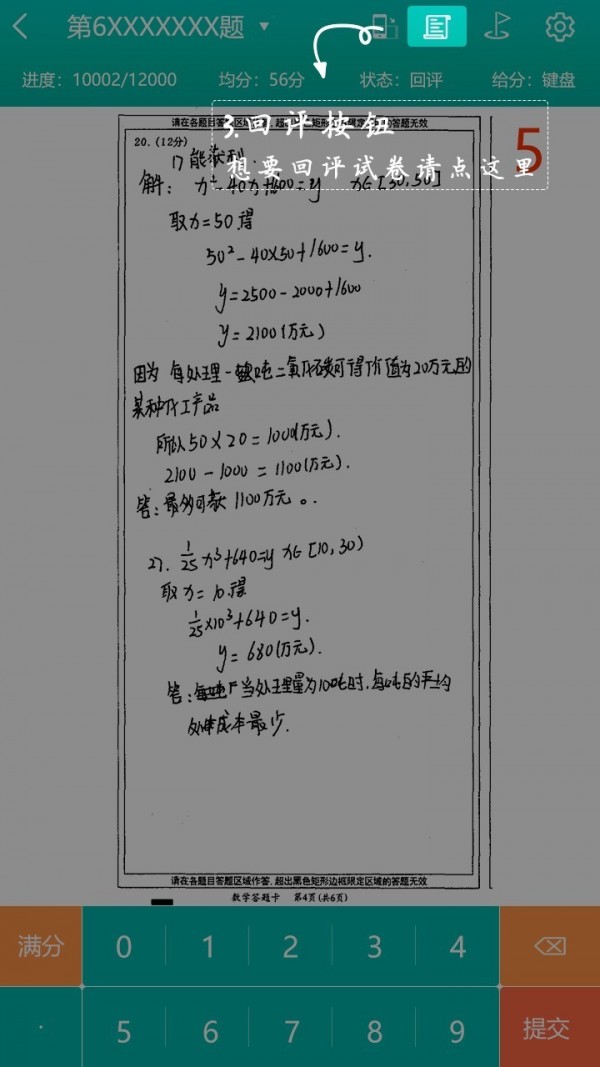 第6XXXXXXX题
进度：10002/12000 均分：56分 状态：回评 给分：键盘
请在各题目答题区域 超出 矩形 限定 的答题无效
3.回评按钮
想要回评试卷请点这里
5
20.(12分)
1) 能获利.
解： x²-40x+1600=y x∈[30,50]
取x=50.得
50²-40×50+1600=y.
y=2500-2000+1600
y=2100(万元)
因为 每处理一吨二氧化碳可得价值为20万元的
某种化工产品
所以50×20=1000(万元).
2100-1000=1100(万元).
答：最多可 1100万元。
27. 1/25 x³+640=y x∈[10,30)
取x=10.得
1/25×10³+640=y.
y=680(万元).
答： 当处理量为10吨时,每吨的平均
处理成本最少.
请在各题目答题区域作答,超出黑色矩形边框限定区域的答题无效
数学答题卡 第4页(共6页)
满分 0 1 2 3 4
· 5 6 7 8 9 提交